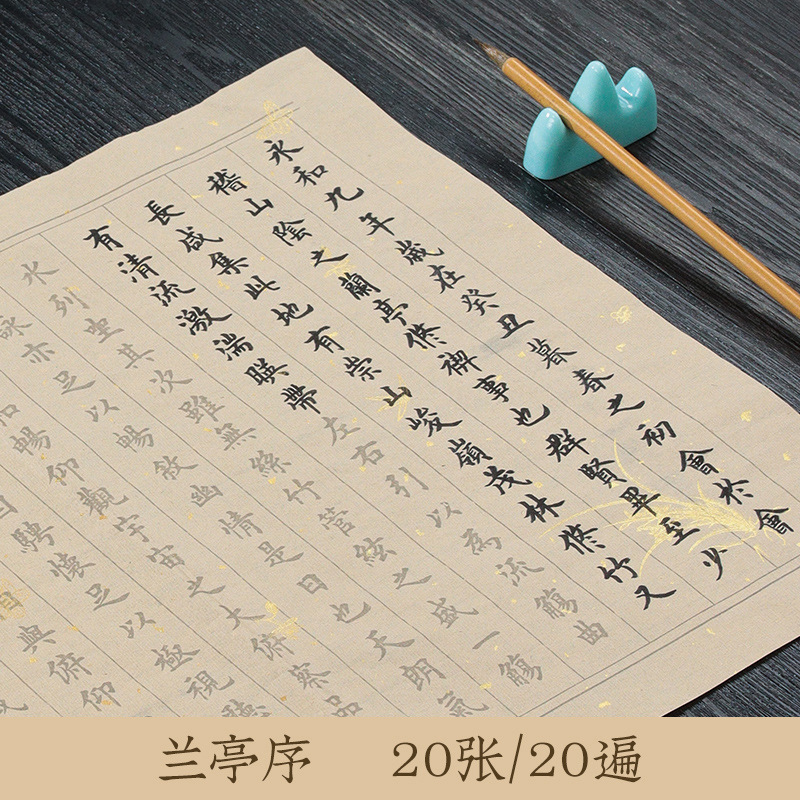 永和九年歲在癸丑暮春之初會於會
稽山陰之蘭亭修禊事也群賢畢至少
長咸集此地有崇山峻嶺茂林修竹又
有清流激湍暎帶左右引以為流觴曲
水列坐其次雖無絲竹管絃之盛一觴
詠亦足以暢敘幽情是日也天朗氣
和暢仰觀宇宙之大俯察品
目騁懷足以極視聽
與俯仰
兰亭序 20张/20遍